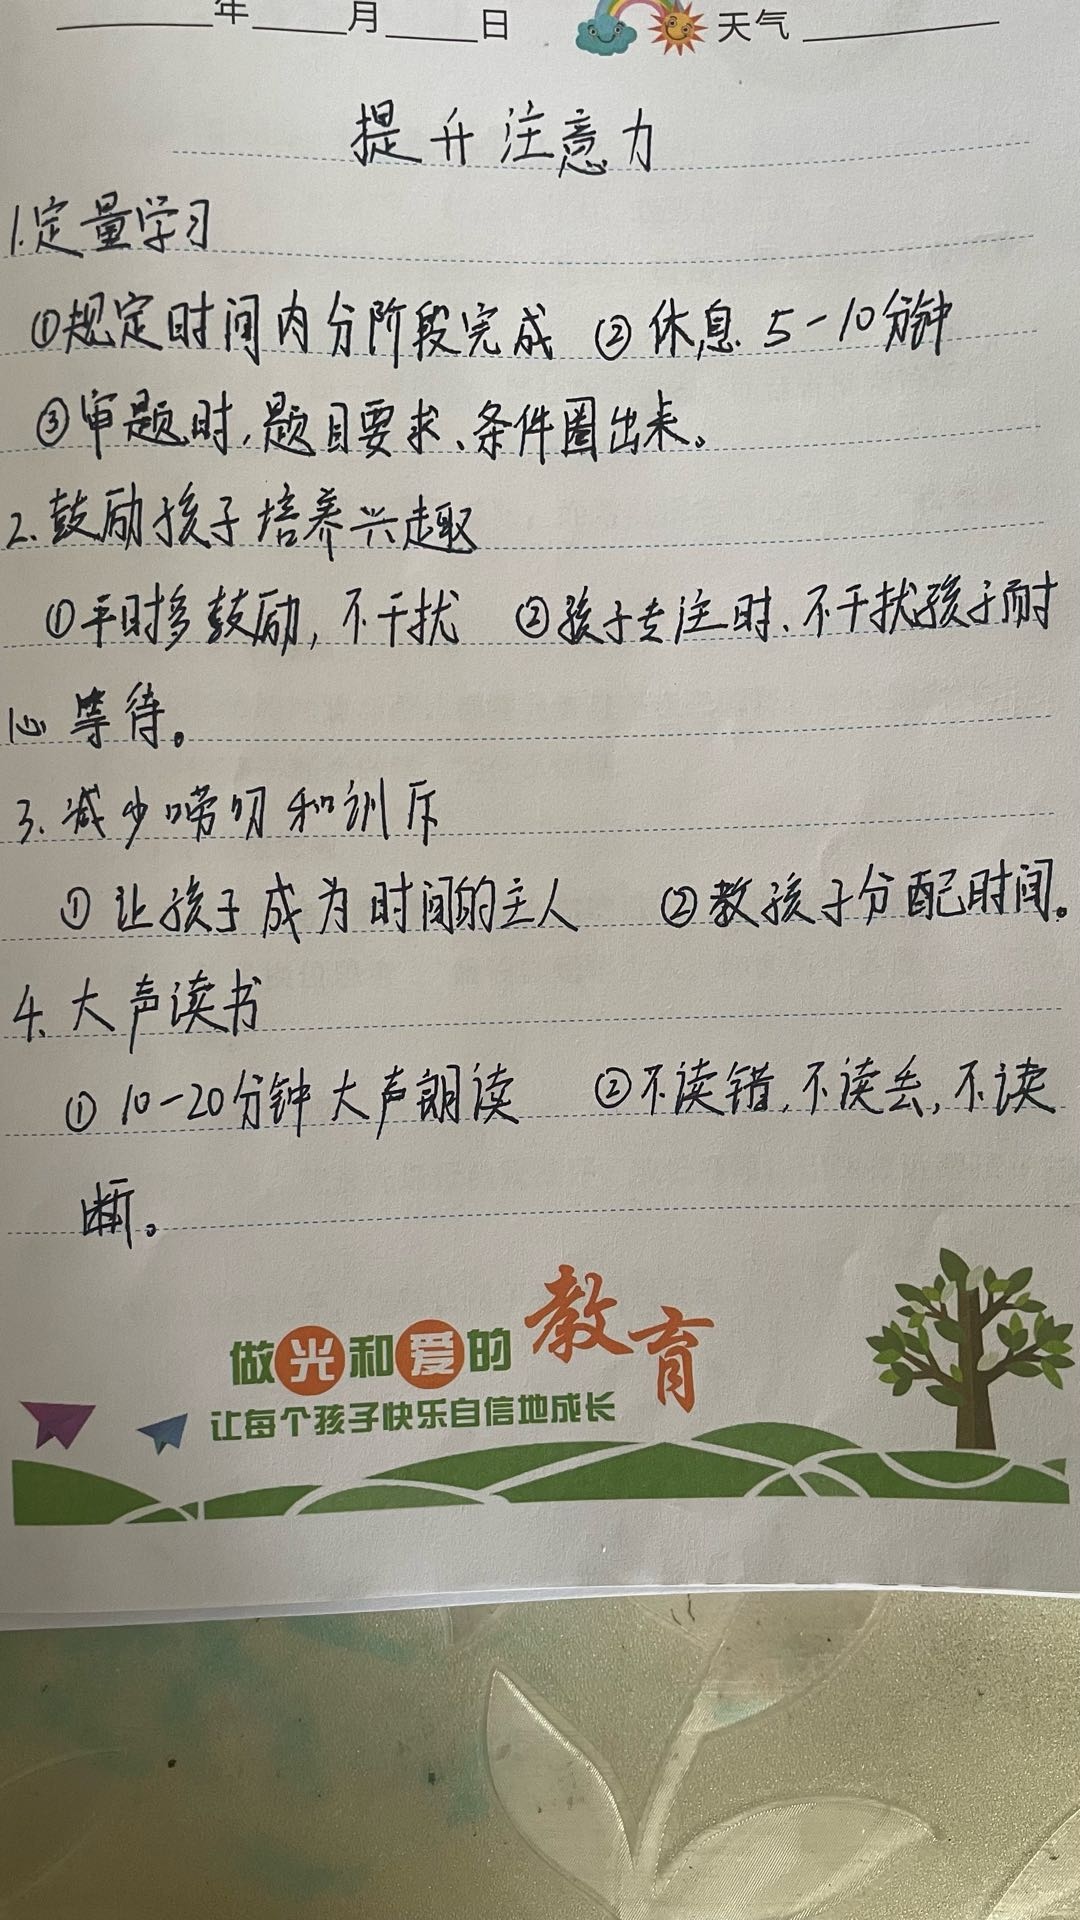 ____年____月____日 天气____
提升注意力
1.定量学习
①规定时间内分阶段完成 ②休息5-10分钟
③审题时,题目要求、条件圈出来。
2.鼓励孩子培养兴趣
①平时多鼓励,不干扰 ②孩子专注时、不干扰孩子耐
心等待。
3.减少唠叨和训斥
①让孩子成为时间的主人 ②教孩子分配时间。
4.大声读书
①10-20分钟大声朗读 ②不读错,不读丢,不读
断。
做光和爱的教育
让每个孩子快乐自信地成长